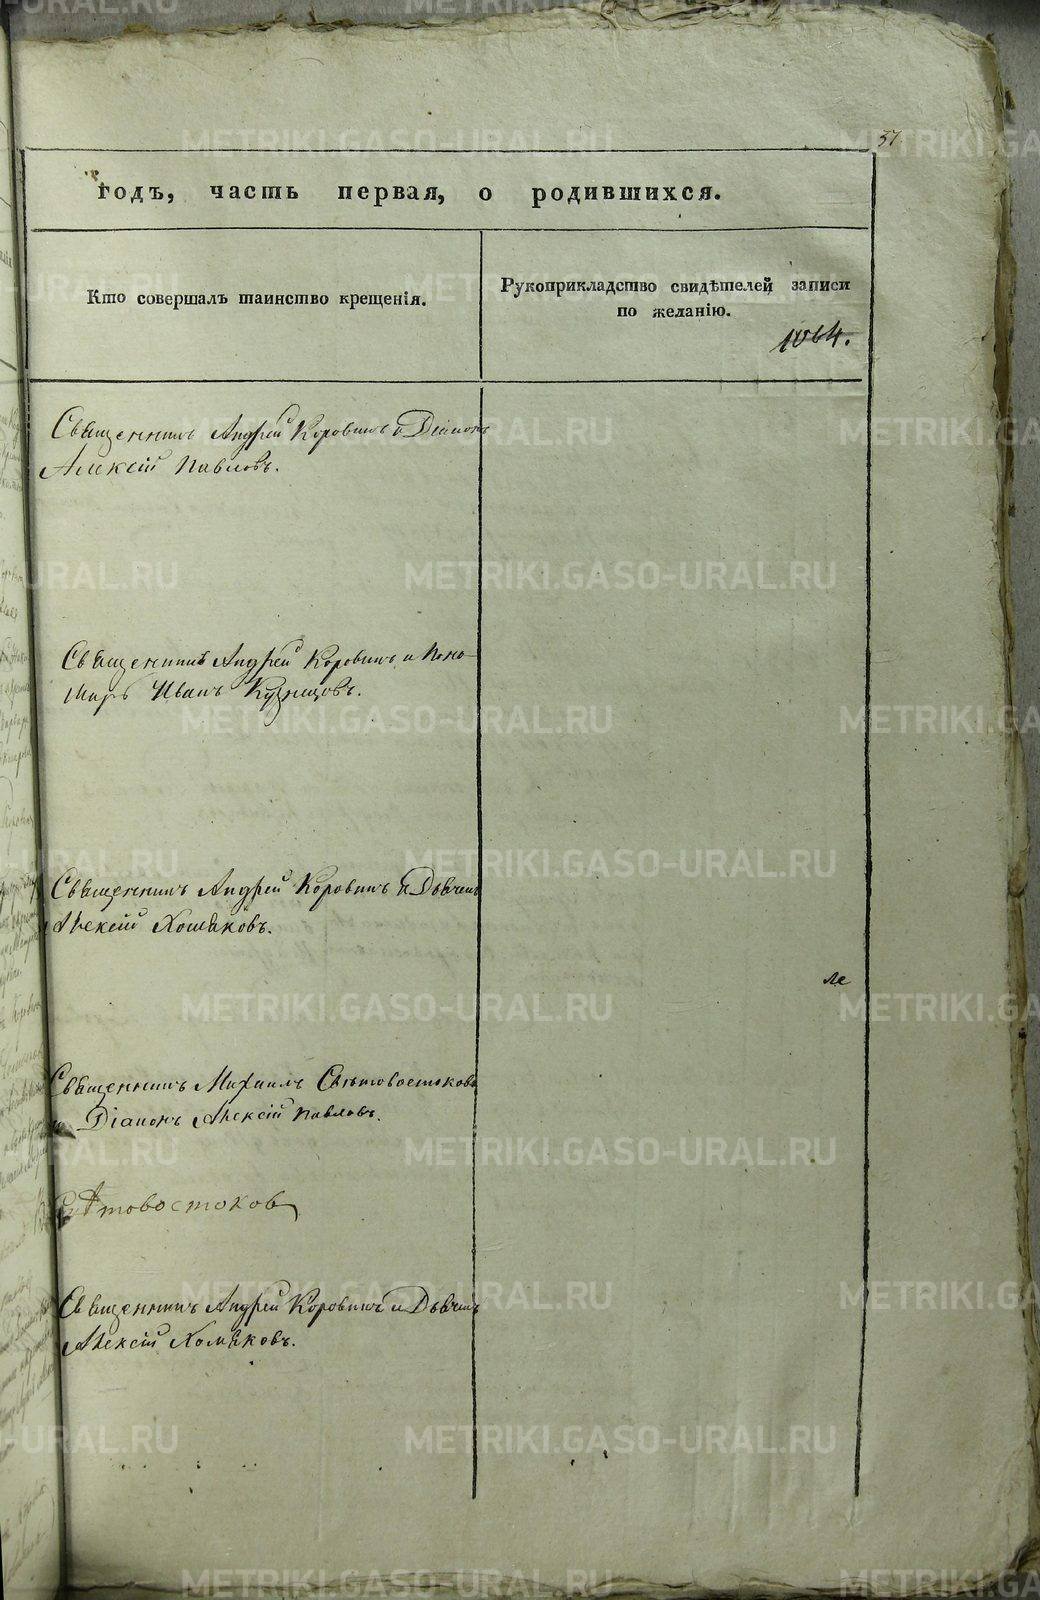 57.
годъ, часть первая, о родившихся.
Кто совершалъ таинство крещенія.
Рукоприкладство свидѣтелей записи
по желанію.
1064.
Священникъ Андрей Коровинъ и Діаконъ
Алексій Павловъ.
Священникъ Андрей Коровинъ и Поно-
марь Иванъ Кузнецовъ.
Священникъ Андрей Коровинъ и Дьячекъ
Алексій Хомяковъ.
ле
Священникъ Михаилъ Свѣтовостоковъ
и Діаконъ Алексій Павловъ.
Свѣтовостоков
Священникъ Андрей Коровинъ и Дьячекъ
Алексій Хомяковъ.
METRIKI.GASO-URAL.RU